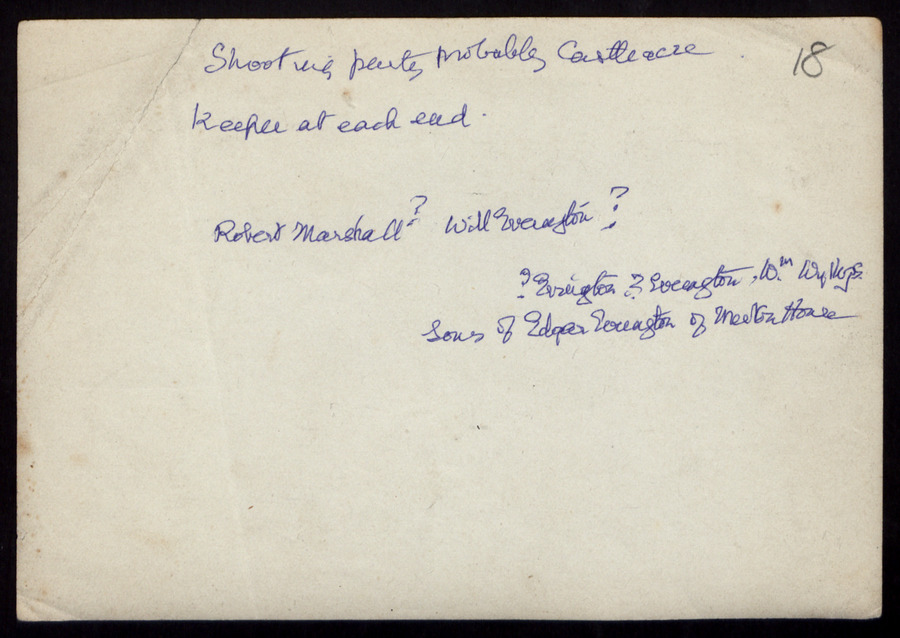 Shooting party probably Castleacre. 18
Keeper at each end.
Robert Marshall? Will Everington?
? Everington ? Everington, Wm
Sons of Edgar Everington of House